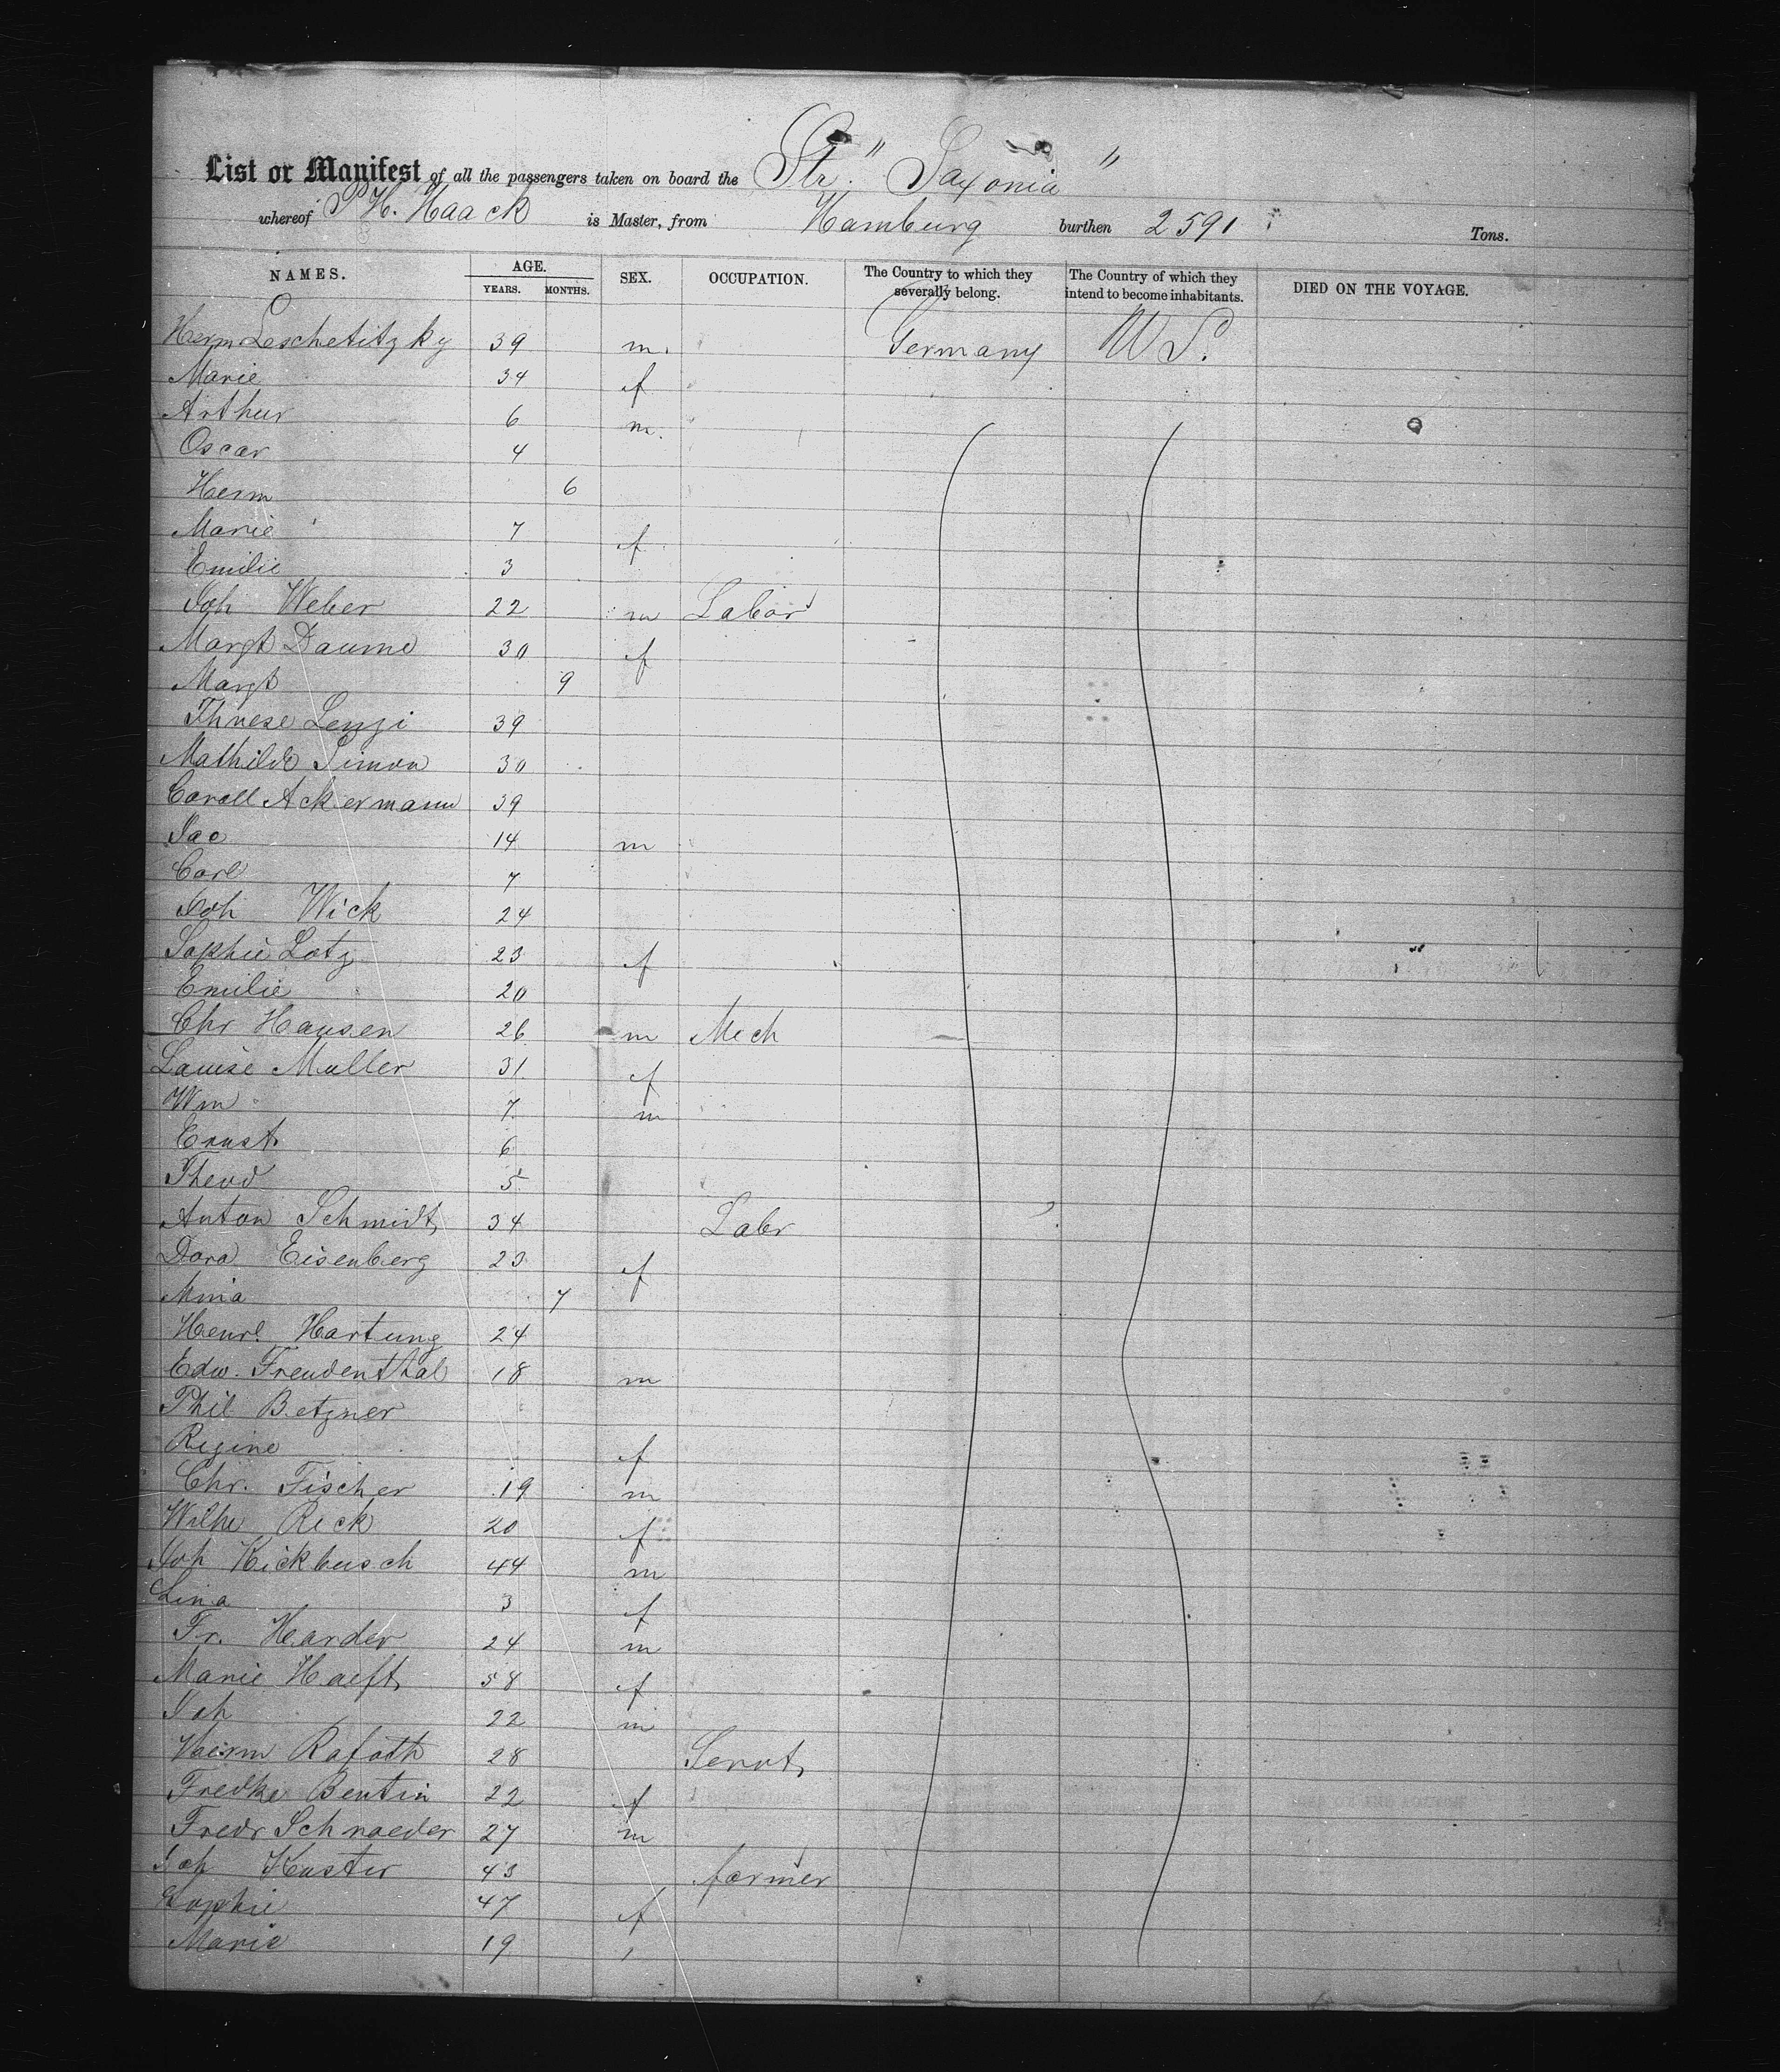 List or Manifest of all the passengers taken on board the Str. "Saxonia"
whereof P H. Haack is Master, from Hamburg burthen 2591 Tons.
NAMES. AGE. YEARS. MONTHS. SEX. OCCUPATION. The Country to which they severally belong. The Country of which they intend to become inhabitants. DIED ON THE VOYAGE.
Herm Leschetitzky 39 m. Germany U S.
Marie 34 f
Arthur 6 m.
Oscar 4
Herm 6
Marie 7 f
Emilie 3
Joh Weber 22 m Labor
Margt Daume 30 f
Margt 9
Threse 39
Mathilde Simon 30
Caroll Ackermann 39
Jac 14 m
Carl 7
Joh Wick 24
Sophie Lotz 23 f
Emilie 20
Chr Hansen 26 m Mech
Louise Muller 31 f
Wm 7 m
Ernst 6
Theod 5
Anton Schmidt 34 Labr
Dora Eisenberg 23 f
Mina 7
Henre Hartung 24
Edw. Freudenthal 18 m
Phil Betzner
Regine f
Chr. Fischer 19 m
Wilhe Reck 20 f
Joh Kickbusch 44 m
Lina 3 f
Fr. Harder 24 m
Marie Haeft 58 f
Joh 22 m
Herm Rafoth 28 Servt
Fredke Bentin 22 f
Fredr Schroeder 27 m
Joh Kuster 43 farmer
Sophie 47 f
Marie 19